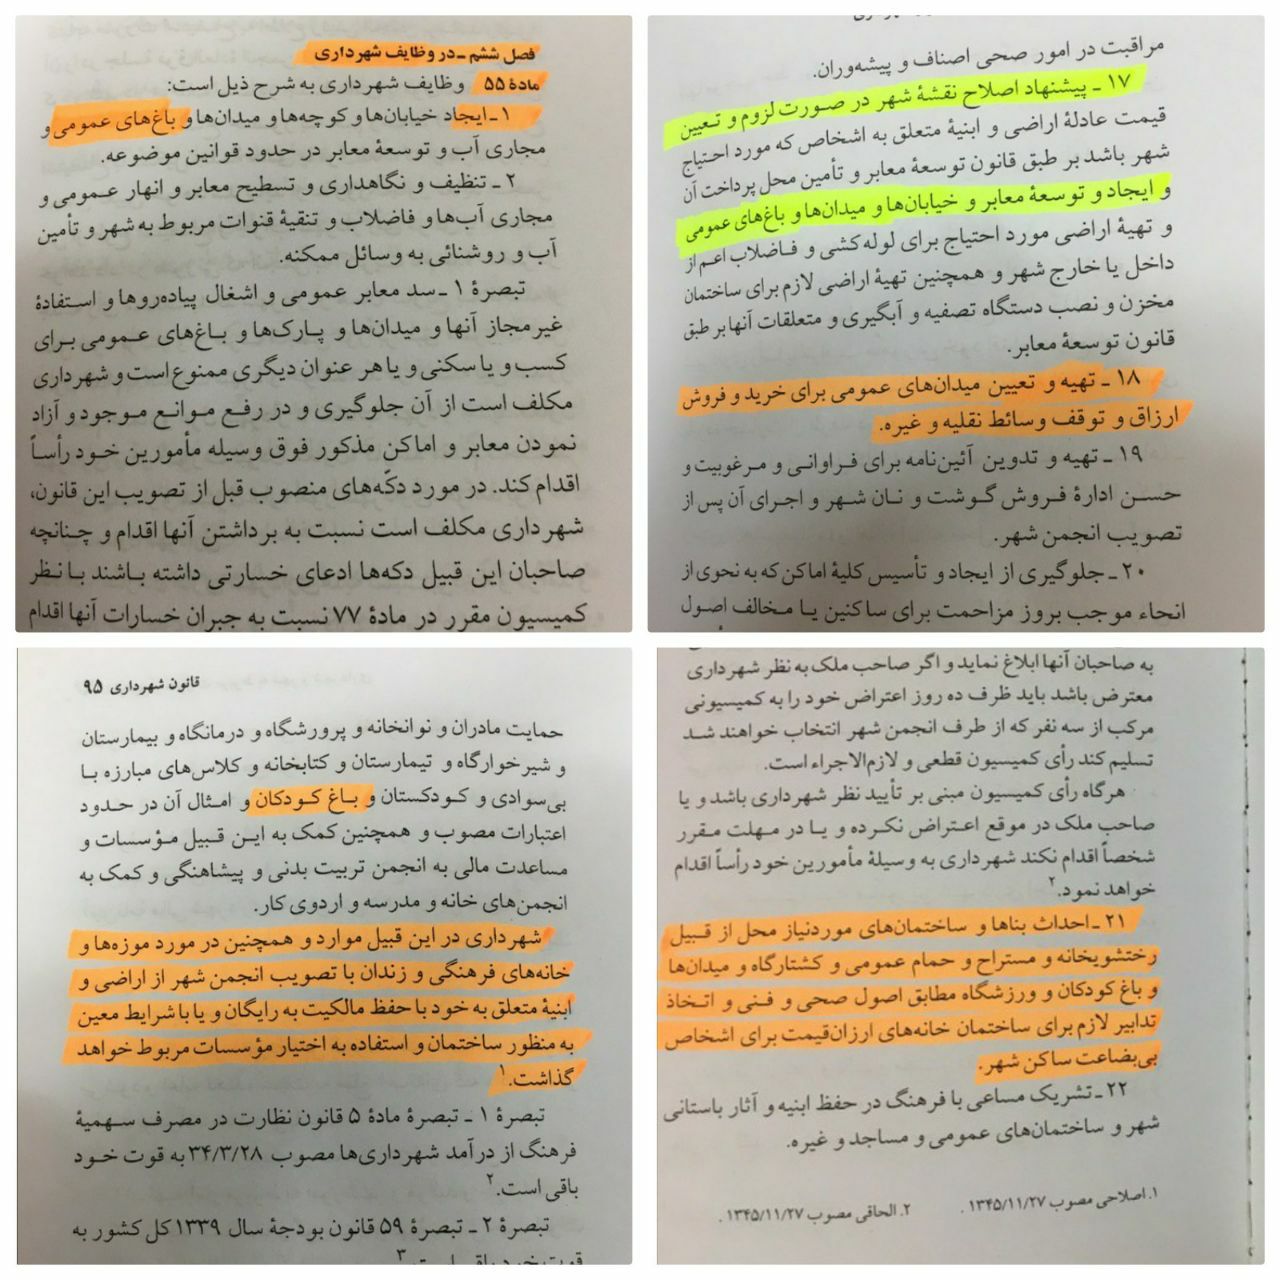 فصل ششم ـ در وظایف شهرداری
مادهٔ ۵۵ وظایف شهرداری به شرح ذیل است:
۱ ـ ایجاد خیابان‌ها و کوچه‌ها و میدان‌ها و باغ‌های عمومی و
مجاری آب و توسعهٔ معابر در حدود قوانین موضوعه.
۲ ـ تنظیف و نگاهداری و تسطیح معابر و انهار عمومی و
مجاری آب‌ها و فاضلاب و تنقیهٔ قنوات مربوط به شهر و تأمین
آب و روشنائی به وسائل ممکنه.
تبصرهٔ ۱ ـ سد معابر عمومی و اشغال پیاده‌روها و استفادهٔ
غیرمجاز آنها و میدان‌ها و پارک‌ها و باغ‌های عمومی برای
کسب و یا سکنی و یا هر عنوان دیگری ممنوع است و شهرداری
مکلف است از آن جلوگیری و در رفع موانع موجود و آزاد
نمودن معابر و اماکن مذکور فوق وسیله مأمورین خود رأساً
اقدام کند. در مورد دکّه‌های منصوب قبل از تصویب این قانون،
شهرداری مکلف است نسبت به برداشتن آنها اقدام و چنانچه
صاحبان این قبیل دکه‌ها ادعای خسارتی داشته باشند با نظر
کمیسیون مقرر در مادهٔ ۷۷ نسبت به جبران خسارات آنها اقدام
مراقبت در امور صحی اصناف و پیشه‌وران.
۱۷ ـ پیشنهاد اصلاح نقشهٔ شهر در صورت لزوم و تعیین
قیمت عادلهٔ اراضی و ابنیهٔ متعلق به اشخاص که مورد احتیاج
شهر باشد بر طبق قانون توسعهٔ معابر و تأمین محل پرداخت آن
و ایجاد و توسعهٔ معابر و خیابان‌ها و میدان‌ها و باغ‌های عمومی
و تهیهٔ اراضی مورد احتیاج برای لوله‌کشی و فاضلاب اعم از
داخل یا خارج شهر و همچنین تهیهٔ اراضی لازم برای ساختمان
مخزن و نصب دستگاه تصفیه و آبگیری و متعلقات آنها بر طبق
قانون توسعهٔ معابر.
۱۸ ـ تهیه و تعیین میدان‌های عمومی برای خرید و فروش
ارزاق و توقف وسائط نقلیه و غیره.
۱۹ ـ تهیه و تدوین آئین‌نامه برای فراوانی و مرغوبیت و
حسن ادارهٔ فروش گوشت و نان شهر و اجرای آن پس از
تصویب انجمن شهر.
۲۰ ـ جلوگیری از ایجاد و تأسیس کلیهٔ اماکن که به نحوی از
انحاء موجب بروز مزاحمت برای ساکنین یا مخالف اصول
قانون شهرداری ۹۵
حمایت مادران و نوانخانه و پرورشگاه و درمانگاه و بیمارستان
و شیرخوارگاه و تیمارستان و کتابخانه و کلاس‌های مبارزه با
بی‌سوادی و کودکستان و باغ کودکان و امثال آن در حدود
اعتبارات مصوب و همچنین کمک به این قبیل مؤسسات و
مساعدت مالی به انجمن تربیت بدنی و پیشاهنگی و کمک به
انجمن‌های خانه و مدرسه و اردوی کار.
شهرداری در این قبیل موارد و همچنین در مورد موزه‌ها و
خانه‌های فرهنگی و زندان با تصویب انجمن شهر از اراضی و
ابنیهٔ متعلق به خود با حفظ مالکیت به رایگان و یا با شرایط معین
به منظور ساختمان و استفاده به اختیار مؤسسات مربوط خواهد
گذاشت.۱
تبصرهٔ ۱ ـ تبصرهٔ مادهٔ ۵ قانون نظارت در مصرف سهمیهٔ
فرهنگ از درآمد شهرداری‌ها مصوب ۳۴/۳/۲۸ به قوت خود
باقی است.۲
تبصرهٔ ۲ ـ تبصرهٔ ۵۹ قانون بودجهٔ سال ۱۳۳۹ کل کشور به
قوت خود باقی است.۳
به صاحبان آنها ابلاغ نماید و اگر صاحب ملک به نظر شهرداری
معترض باشد باید ظرف ده روز اعتراض خود را به کمیسیونی
مرکب از سه نفر که از طرف انجمن شهر انتخاب خواهند شد
تسلیم کند رأی کمیسیون قطعی و لازم‌الاجراء است.
هرگاه رأی کمیسیون مبنی بر تأیید نظر شهرداری باشد و یا
صاحب ملک در موقع اعتراض نکرده و یا در مهلت مقرر
شخصاً اقدام نکند شهرداری به وسیلهٔ مأمورین خود رأساً اقدام
خواهد نمود.۲
۲۱ ـ احداث بناها و ساختمان‌های موردنیاز محل از قبیل
رختشویخانه و مستراح و حمام عمومی و کشتارگاه و میدان‌ها
و باغ کودکان و ورزشگاه مطابق اصول صحی و فنی و اتخاذ
تدابیر لازم برای ساختمان خانه‌های ارزان‌قیمت برای اشخاص
بی‌بضاعت ساکن شهر.
۲۲ ـ تشریک مساعی با فرهنگ در حفظ ابنیه و آثار باستانی
شهر و ساختمان‌های عمومی و مساجد و غیره.
۱. اصلاحی مصوب ۱۳۴۵/۱۱/۲۷. ۲. الحاقی مصوب ۱۳۴۵/۱۱/۲۷.